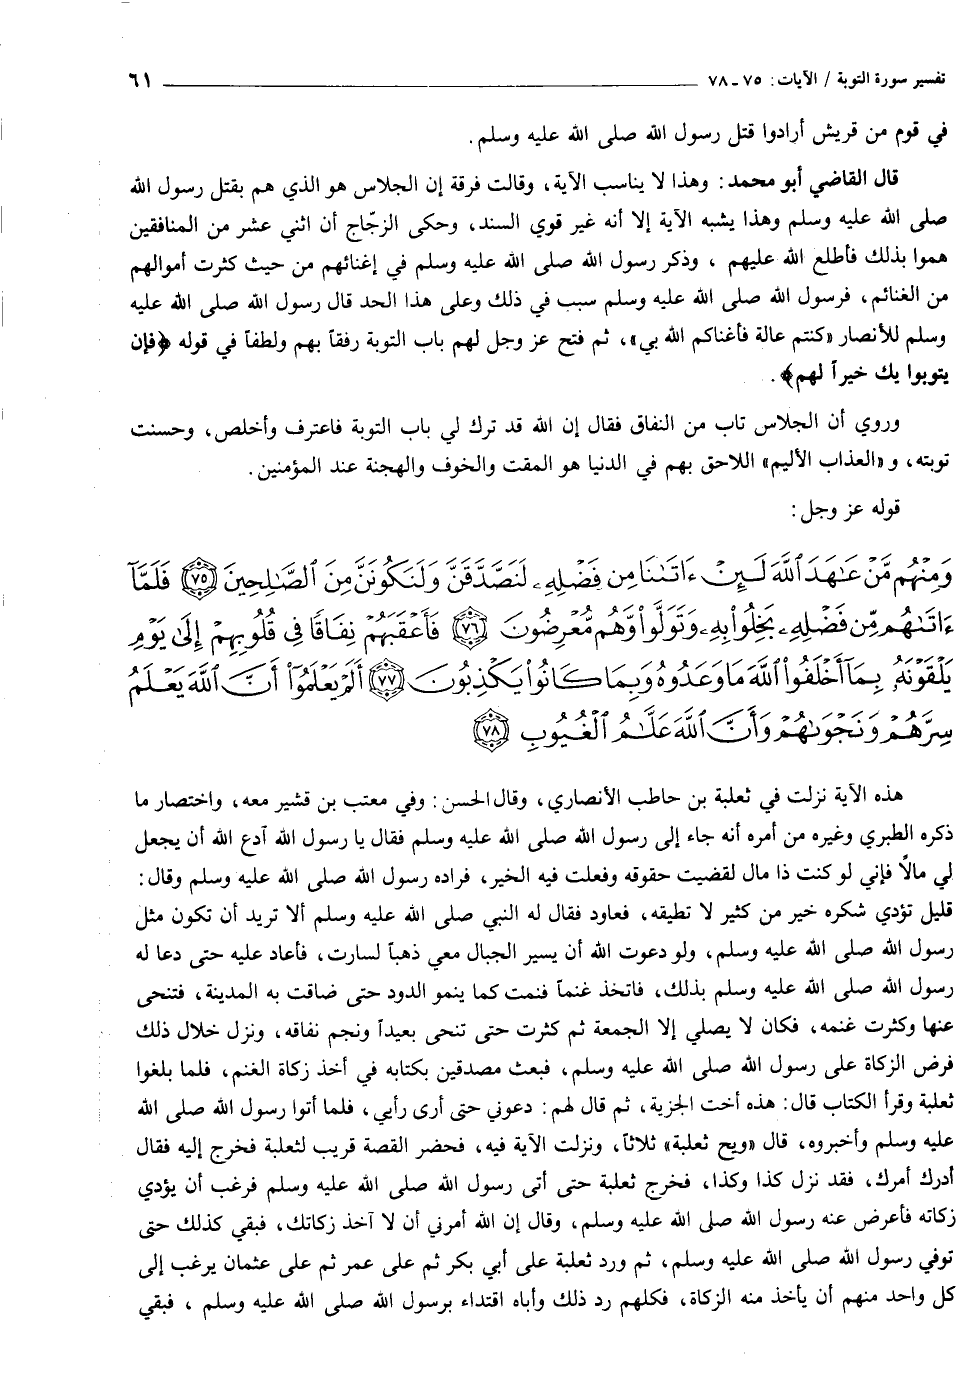 تفسير سورة التوبة / الآيات: ٧٥ - ٧٨ ٦١
في قوم من قريش أرادوا قتل رسول الله صلى الله عليه وسلم.
قال القاضي أبو محمد: وهذا لا يناسب الآية، وقالت فرقة إن الجلاس هو الذي هم بقتل رسول الله
صلى الله عليه وسلم وهذا يشبه الآية إلا أنه غير قوي السند، وحكى الزجّاج أن اثني عشر من المنافقين
هموا بذلك فأطلع الله عليهم ، وذكر رسول الله صلى الله عليه وسلم في إغنائهم من حيث كثرت أموالهم
من الغنائم، فرسول الله صلى الله عليه وسلم سبب في ذلك وعلى هذا الحد قال رسول الله صلى الله عليه
وسلم للأنصار «كنتم عالة فأغناكم الله بي»، ثم فتح عز وجل لهم باب التوبة رفقاً بهم ولطفاً في قوله ﴿فإن
يتوبوا يك خيراً لهم﴾.
وروي أن الجلاس تاب من النفاق فقال إن الله قد ترك لي باب التوبة فاعترف وأخلص، وحسنت
توبته، و «العذاب الأليم» اللاحق بهم في الدنيا هو المقت والخوف والهجنة عند المؤمنين.
قوله عز وجل:
وَمِنْهُم مَّنْ عَٰهَدَ ٱللَّهَ لَئِنْ ءَاتَىٰنَا مِن فَضْلِهِۦ لَنَصَّدَّقَنَّ وَلَنَكُونَنَّ مِنَ ٱلصَّٰلِحِينَ ٧٥ فَلَمَّآ
ءَاتَىٰهُم مِّن فَضْلِهِۦ بَخِلُوا۟ بِهِۦ وَتَوَلَّوا۟ وَّهُم مُّعْرِضُونَ ٧٦ فَأَعْقَبَهُمْ نِفَاقًا فِى قُلُوبِهِمْ إِلَىٰ يَوْمِ
يَلْقَوْنَهُۥ بِمَآ أَخْلَفُوا۟ ٱللَّهَ مَا وَعَدُوهُ وَبِمَا كَانُوا۟ يَكْذِبُونَ ٧٧ أَلَمْ يَعْلَمُوٓا۟ أَنَّ ٱللَّهَ يَعْلَمُ
سِرَّهُمْ وَنَجْوَىٰهُمْ وَأَنَّ ٱللَّهَ عَلَّٰمُ ٱلْغُيُوبِ ٧٨
هذه الآية نزلت في ثعلبة بن حاطب الأنصاري، وقال الحسن: وفي معتب بن قشير معه، واختصار ما
ذكره الطبري وغيره من أمره أنه جاء إلى رسول الله صلى الله عليه وسلم فقال يا رسول الله آدع الله أن يجعل
لي مالاً فإني لو كنت ذا مال لقضيت حقوقه وفعلت فيه الخير، فراده رسول الله صلى الله عليه وسلم وقال:
قليل تؤدي شكره خير من كثير لا تطيقه، فعاود فقال له النبي صلى الله عليه وسلم ألا تريد أن تكون مثل
رسول الله صلى الله عليه وسلم، ولو دعوت الله أن يسير الجبال معي ذهباً لسارت، فأعاد عليه حتى دعا له
رسول الله صلى الله عليه وسلم بذلك، فاتخذ غنماً فنمت كما ينمو الدود حتى ضاقت به المدينة، فتنحى
عنها وكثرت غنمه، فكان لا يصلي إلا الجمعة ثم كثرت حتى تنحى بعيداً ونجم نفاقه، ونزل خلال ذلك
فرض الزكاة على رسول الله صلى الله عليه وسلم، فبعث مصدقين بكتابه في أخذ زكاة الغنم، فلما بلغوا
ثعلبة وقرأ الكتاب قال: هذه أخت الجزية، ثم قال لهم: دعوني حتى أرى رأيي، فلما أتوا رسول الله صلى الله
عليه وسلم وأخبروه، قال «ويح ثعلبة» ثلاثاً، ونزلت الآية فيه، فحضر القصة قريب لثعلبة فخرج إليه فقال
أدرك أمرك، فقد نزل كذا وكذا، فخرج ثعلبة حتى أتى رسول الله صلى الله عليه وسلم فرغب أن يؤدي
زكاته فأعرض عنه رسول الله صلى الله عليه وسلم، وقال إن الله أمرني أن لا آخذ زكاتك، فبقي كذلك حتى
توفي رسول الله صلى الله عليه وسلم، ثم ورد ثعلبة على أبي بكر ثم على عمر ثم على عثمان يرغب إلى
كل واحد منهم أن يأخذ منه الزكاة، فكلهم رد ذلك وأباه اقتداء برسول الله صلى الله عليه وسلم ، فبقي